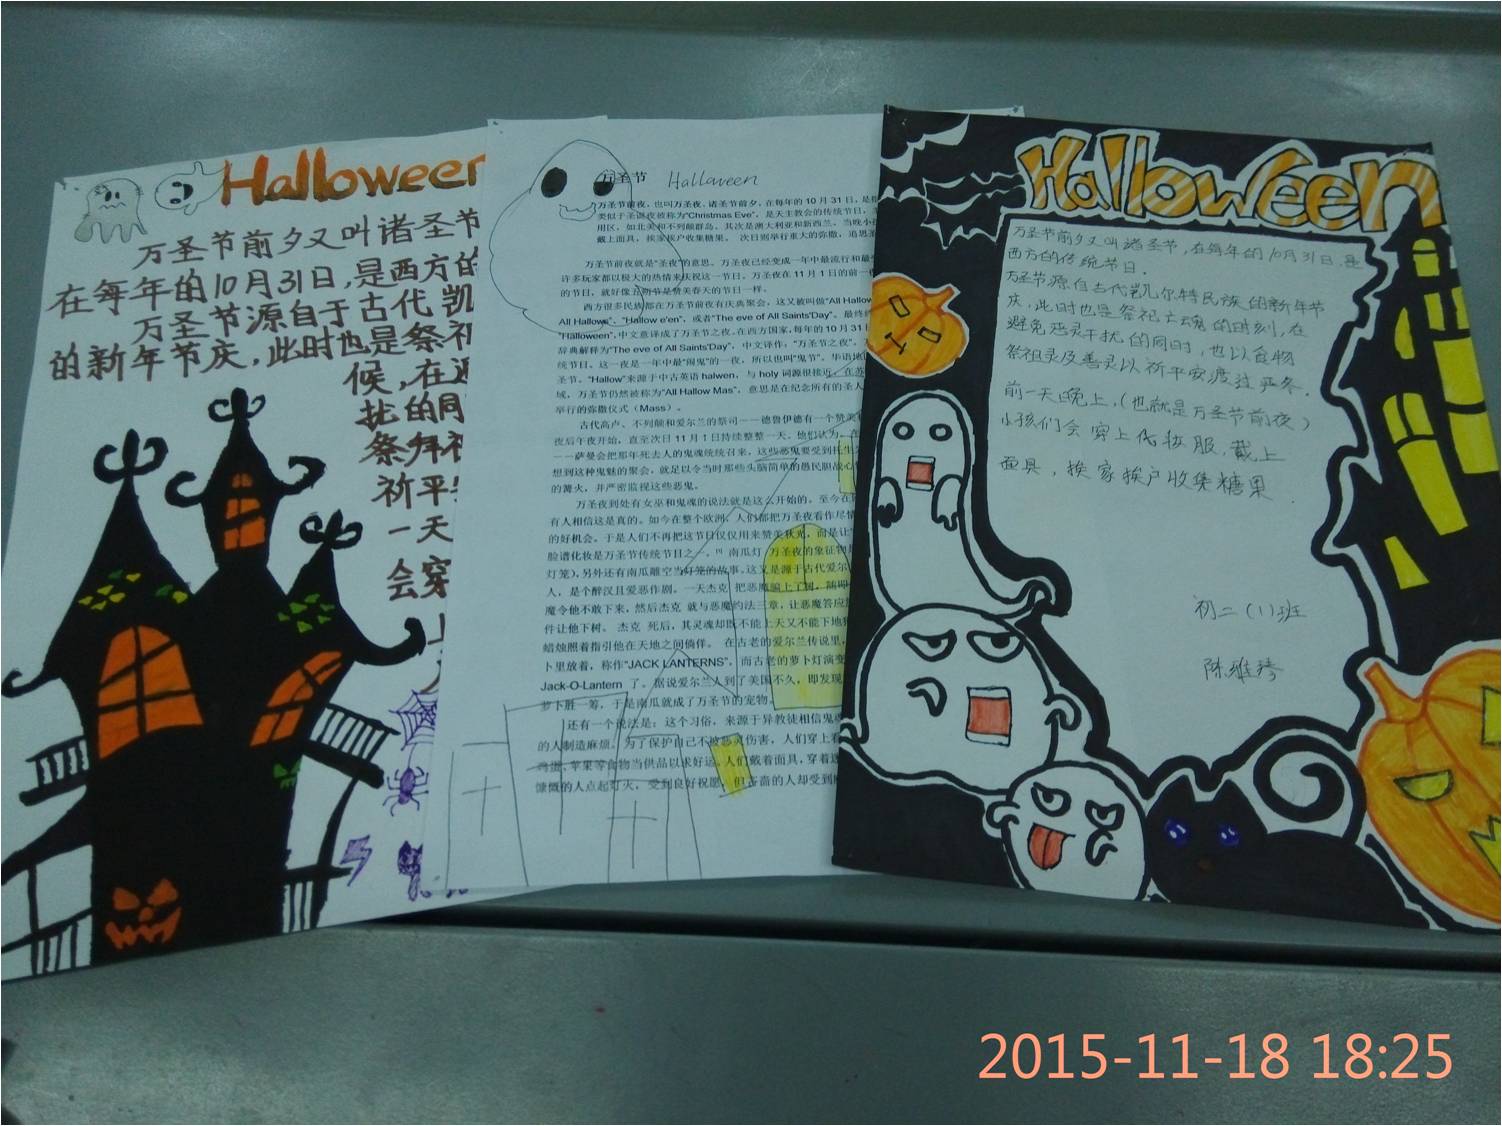 Halloween
万圣节前夕又叫诸圣节
在每年的10月31日,是西方的
万圣节源自于古代凯
的新年节庆,此时也是祭祀
候,在
扰的同
祭拜祖
祈平
一天
会穿
万圣节 Hallaween
万圣节前夜,也叫万圣夜、诸圣节前夕,在每年的 10 月 31 日,是
类似于圣诞夜被称为“Christmas Eve”,是天主教会的传统节日,
用区,如北美和不列颠群岛,其次是澳大利亚和新西兰。当晚小孩
戴上面具,挨家挨户收集糖果。 次日则举行重大的弥撒,追思
万圣节前夜就是“圣夜”的意思。万圣夜已经变成一年中最流行和最
许多玩家都以极大的热情来庆祝这一节日。万圣夜在 11 月 1 日的前一
的节日,就好像五朔节是赞美春天的节日一样。
西方很多民族都在万圣节前夜有庆典聚会,这又被叫做“All Hallow
All Hallows”、“Hallow e'en”, 或者“The eve of All Saints'Day”。最终
“Halloween”,中文意译成了万圣节之夜。在西方国家,每年的 10 月 31
辞典解释为“The eve of All Saints'Day”,中文译作:“万圣节之夜”。
统节日。这一夜是一年中最“闹鬼”的一夜,所以也叫“鬼节”。华语地
圣节。“Hallow”来源于中古英语 halwen,与 holy 词源很接近,在苏
域,万圣节仍然被称为“All Hallow Mas”,意思是在纪念所有的圣人
举行的弥撒仪式(Mass)。
古代高卢、不列颠和爱尔兰的祭司——德鲁伊德有一个赞美
夜后午夜开始,直至次日 11 月 1 日持续整整一天。他们认为,在
——萨曼会把那年死去人的鬼魂统统召来,这些恶鬼要受到托生
想到这种鬼魅的聚会,就足以令当时那些头脑简单的愚民胆战心
的篝火,并严密监视这些恶鬼。
万圣夜到处有女巫和鬼魂的说法就是这么开始的。至今在
有人相信这是真的。如今在整个欧洲,人们都把万圣夜看作尽情
的好机会。于是人们不再把这节日仅仅用来赞美秋光,而是让“
脸谱化妆是万圣节传统节目之一。 南瓜灯 万圣夜的象征物
灯笼),另外还有南瓜雕空当灯笼的故事。这又是源于古代爱尔
人,是个醉汉且爱恶作剧。一天杰克 把恶魔骗上了树,随即
魔令他不敢下来,然后杰克 就与恶魔约法三章,让恶魔答应
件让他下树。 杰克 死后,其灵魂却既不能上天又不能下地
蜡烛照着指引他在天地之间倘佯。 在古老的爱尔兰传说里,
卜里放着,称作“JACK LANTERNS”,而古老的萝卜灯演变
Jack-O-Lantern 了。据说爱尔兰人到了美国不久,即发现
萝卜胜一筹,于是南瓜就成了万圣节的宠物。
还有一个说法是:这个习俗,来源于异教徒相信鬼魂
的人制造麻烦。为了保护自己不被恶灵伤害,人们穿上
鸡蛋、苹果等食物当供品以求好运。人们戴着面具,穿着
慷慨的人点起灯火,受到良好祝愿,但吝啬的人却受到
Halloween
万圣节前夕又叫诸圣节,在每年的10月31日,是
西方的传统节日.
万圣节源自古代凯尔特民族的新年节
庆,此时也是祭祀亡魂的时刻,在
避免恶灵干扰的同时,也以食物
祭祖灵及善灵以祈平安渡过严冬.
前一天晚上,(也就是万圣节前夜)
小孩们会穿上化妆服,戴上
面具,挨家挨户收集糖果.
初二(1)班
陈维琦
2015-11-18 18:25